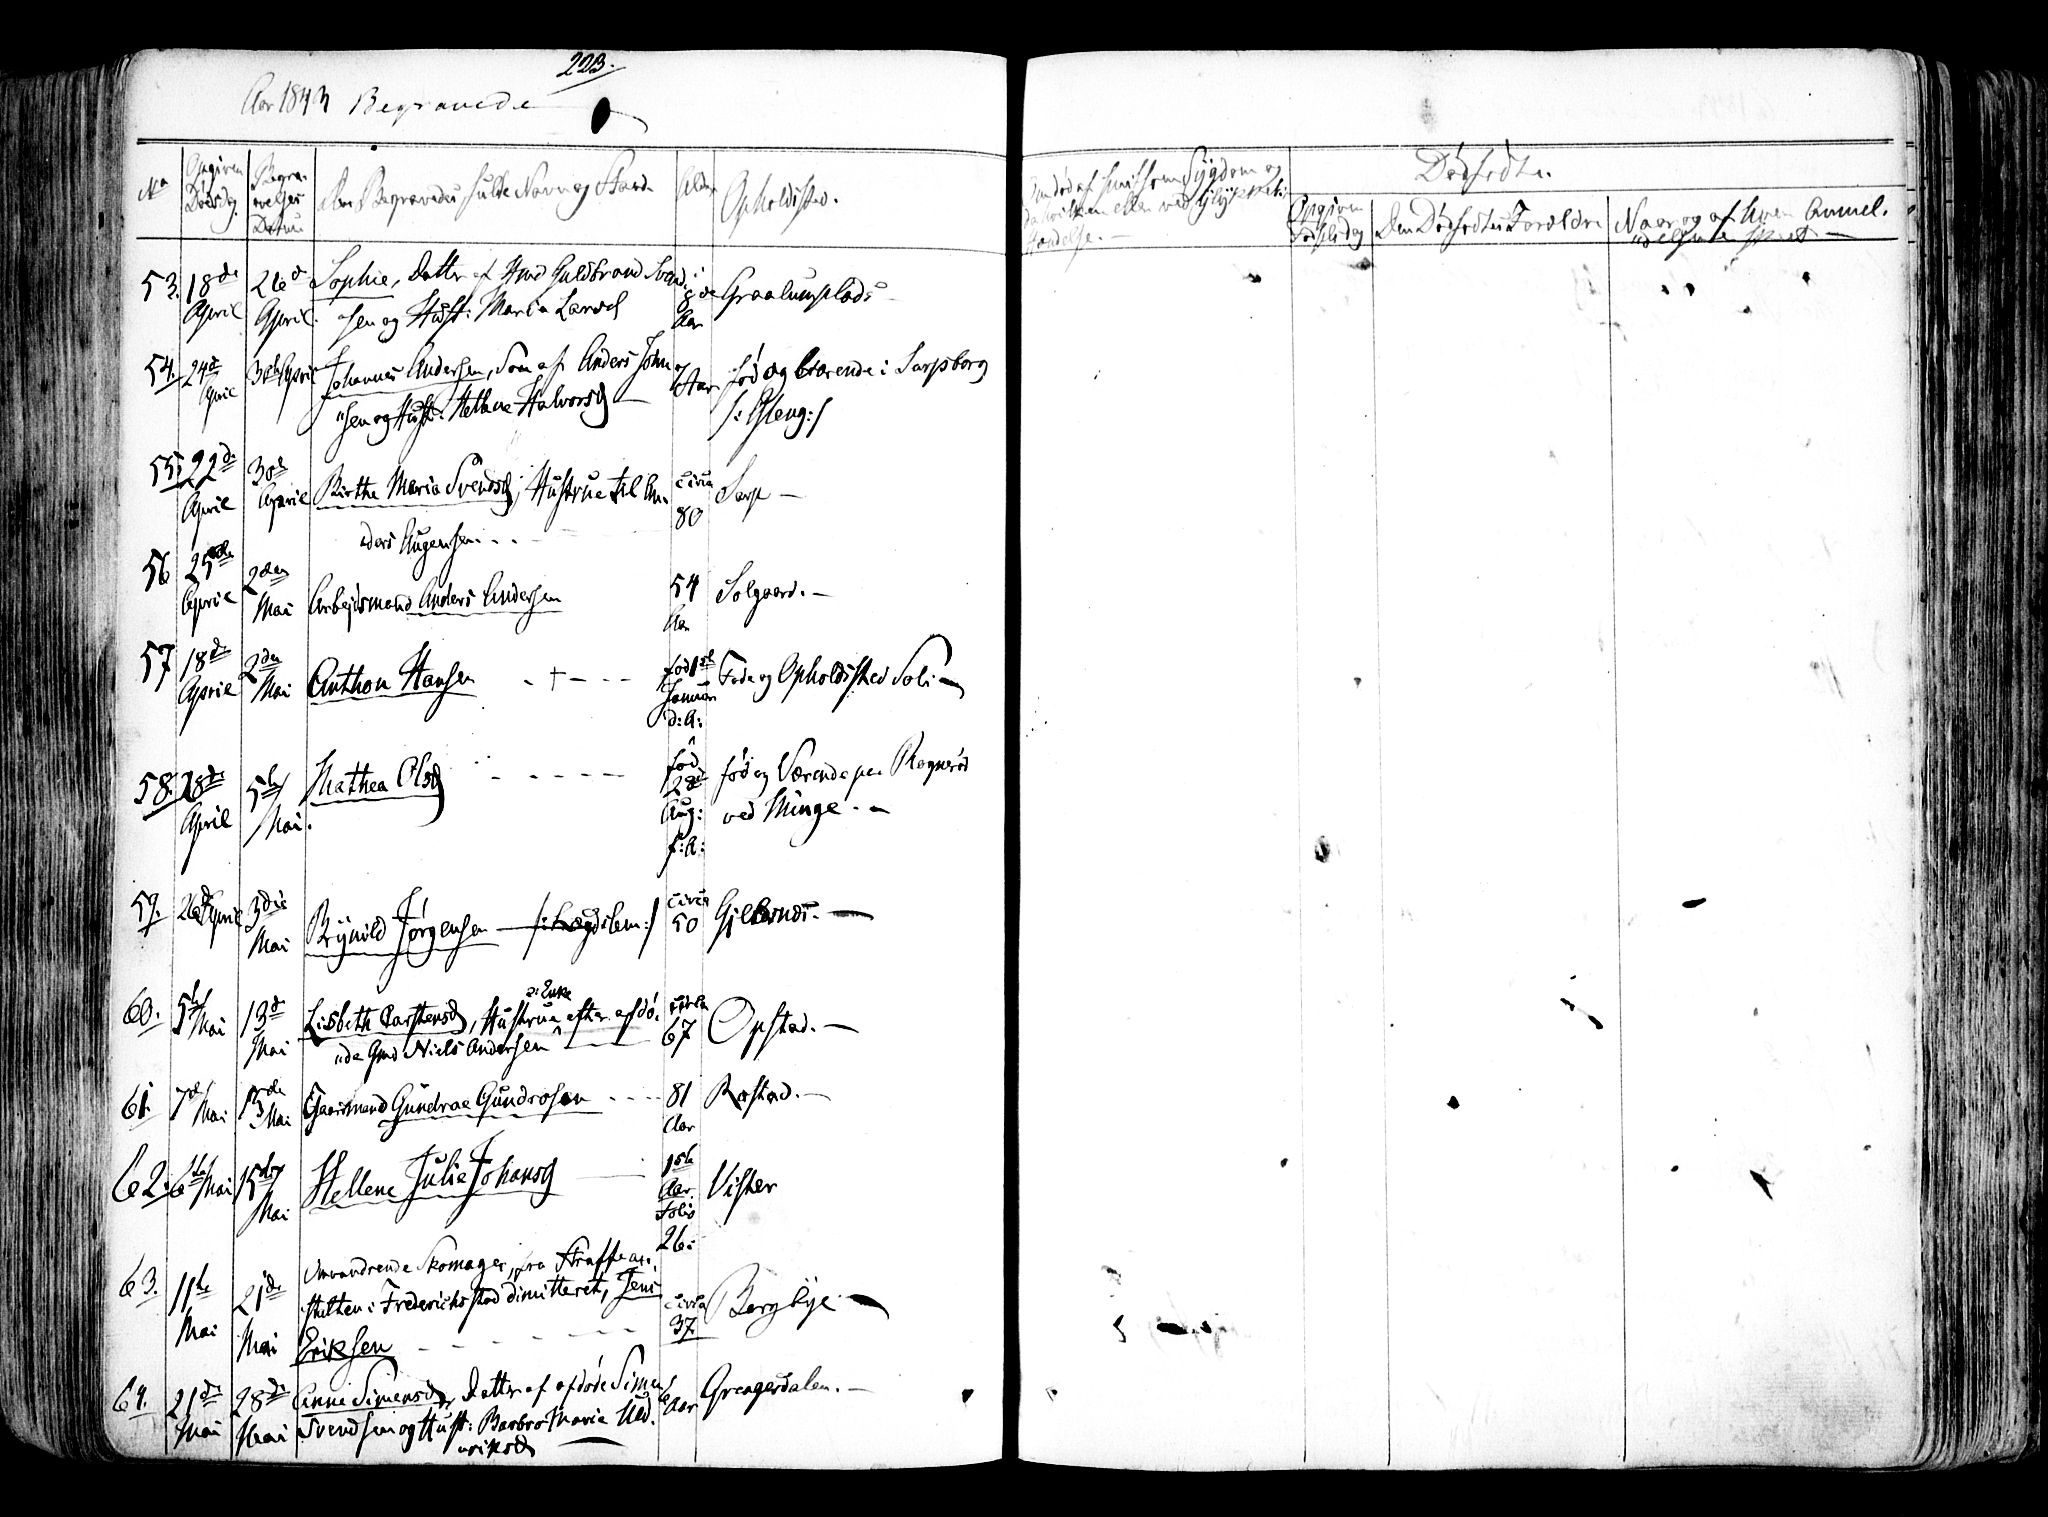 223.
Aar 1843 Begravede
No
Opgiven Dødsdag.
Begravelses Datum
Den Begravedes fulde Navn og Stand
Alder
Opholdssted.
Om død af smitsom Sygdom og
hvilken eller ved ulykkelig
Hændelse. —
Dødfødte.
Opgiven Fødselsdag
Den Dødfødtes Forældre
Naar og af hvem Anmel-
delsen er skeet —
53. 18de April 26d April. Sophie, Datter af Hmd Guldbrand Svend-
sen og Hust: Maria Larsd
Aar Graalumplads —
54. 24d April 30de April Johannes Andersen, Søn af Anders Johan-
sen og Hust: Hellene Halvorsd —
Aar fød og værende i Sarpsborg
/: Ysteng :/
55. 22de April 30d April Birthe Maria Svendsd, Hustrue til An-
ders Augensen. . .
circa 80 Sarp —
56 25de April 2den Mai Arbejdsmand Anders Andersen 54 Aar Solgaard. —
57 18de April 2den Mai Anthon Hansen - + - - - fød 1ste Januar d: A: Føde og Opholdssted Soli —
58. 28de April 5te Mai. Mathea Olsd - - - - - fød 28de Aug: f: A: fød og Værende paa Ragnerød
ved Minge. —
59. 26d April 3die Mai Brynild Jørgensen — /: Lægdslem :/ circa 50 —
60. 5te Mai 13d Mai Lisbeth Carstensd, Hustrue efter afdø-
ɔ: Enke
de Gmd Niels Andersen —
circa 67 Opstad. —
61. 7de Mai 13de Mai Gaardmand Gundroe Gundrosen . . . . 81 Aar Rostad. —
62. 6te Mai 15de Mai Hellene Julie Johansd — 1ste Aar. Folio 26: Vister
63. 11te Mai 21de Mai Omvandrende Skomager, fra Straffean-
stalten i Frederichsstad dimitteret, Jens
Eriksen - - - - -
circa 37 Bergbye —
64. 21de Mai 28de Mai Anne Simensd, Datter af afdøde Simen
Svendsen og Hust: Barbro Maria Uld-
riksd —
Aar Grengerdalen. —